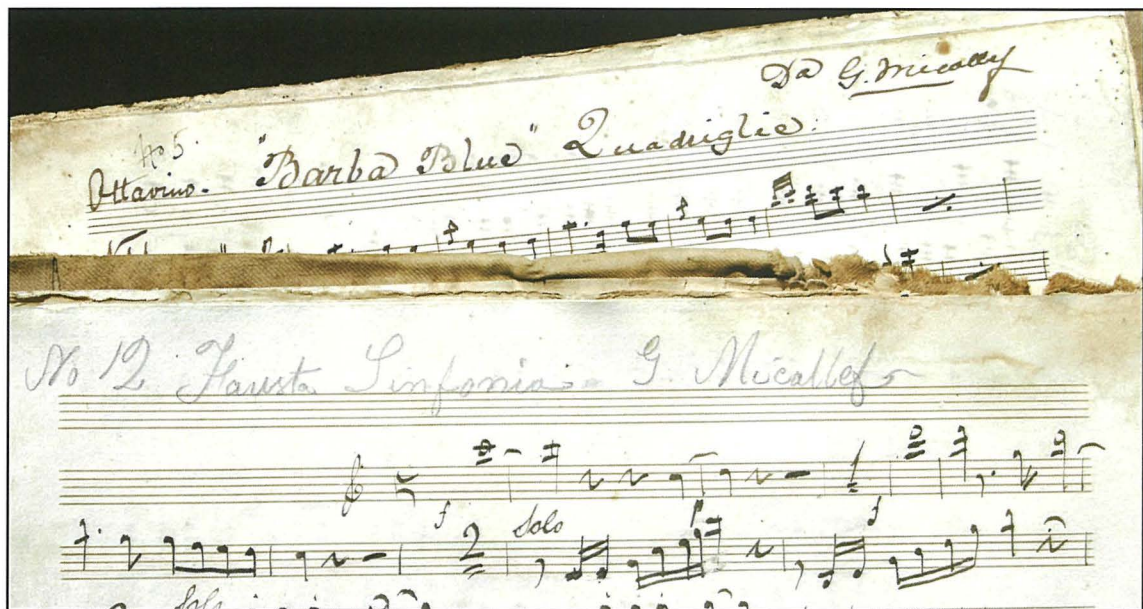 Da G. Micalley
No 5.
Ottavino. "Barba Blue" Quadriglie.
No 12 Fausta Sinfonia G. Micallef
f
2
Solo
p
1
f
Solo